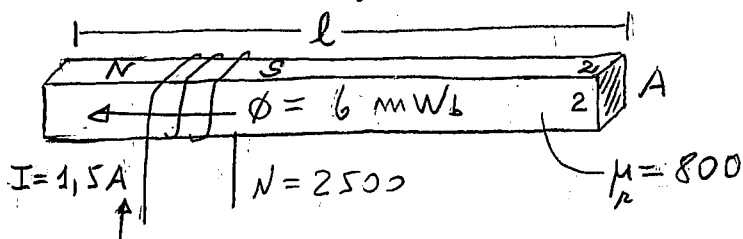 l
N S 2
φ = 6 mWb 2 A
I=1,5A N=2500 μr=800